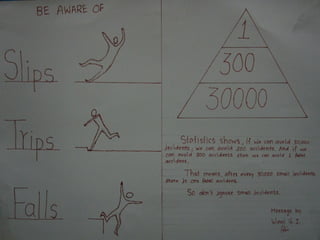 BE AWARE OF
Slips
Trips
Falls
1
300
30000
Statistics shows, if we can avoid 30,000
incidents, we can avoid 300 accidents. And if we
can avoid 300 accidents then we can avoid 1 fatal
accident.
That means, after every 30000 small incidents
there is one fatal accident.
So don't ignore small incidents.
Message by